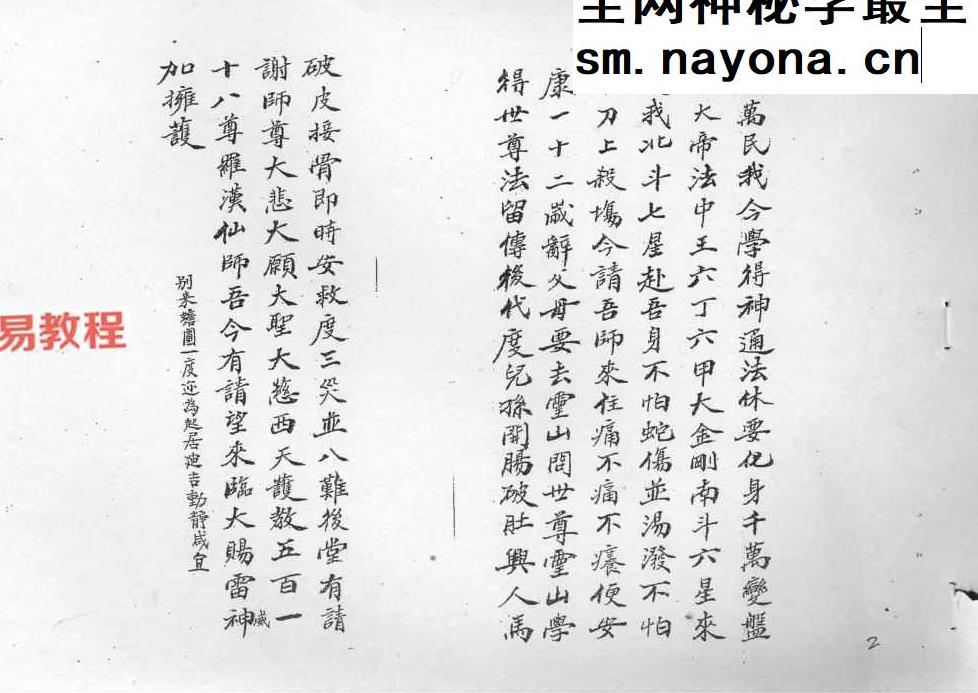 全网神秘学最全
sm.nayona.cn
萬民我今學得神通法休要化身千萬變盤
大帝法中王六丁六甲大金剛南斗六星來
我北斗七星赴吾身不怕蛇傷並湯潑不怕
刀上殺場今請吾師來住痛不痛不癢便安
康一十二歲辭父母要去靈山問世尊靈山學
得世尊法留傳後代度兒孫開腸破肚興人馬
破皮接骨即時安救度三災並八難後堂有請
謝師尊大悲大願大聖大慈西天護教五百一
十八尊羅漢仙師吾今有請望來臨大賜雷神
威
加擁護
一度迎為起居迪吉動靜咸宜
易教程
2